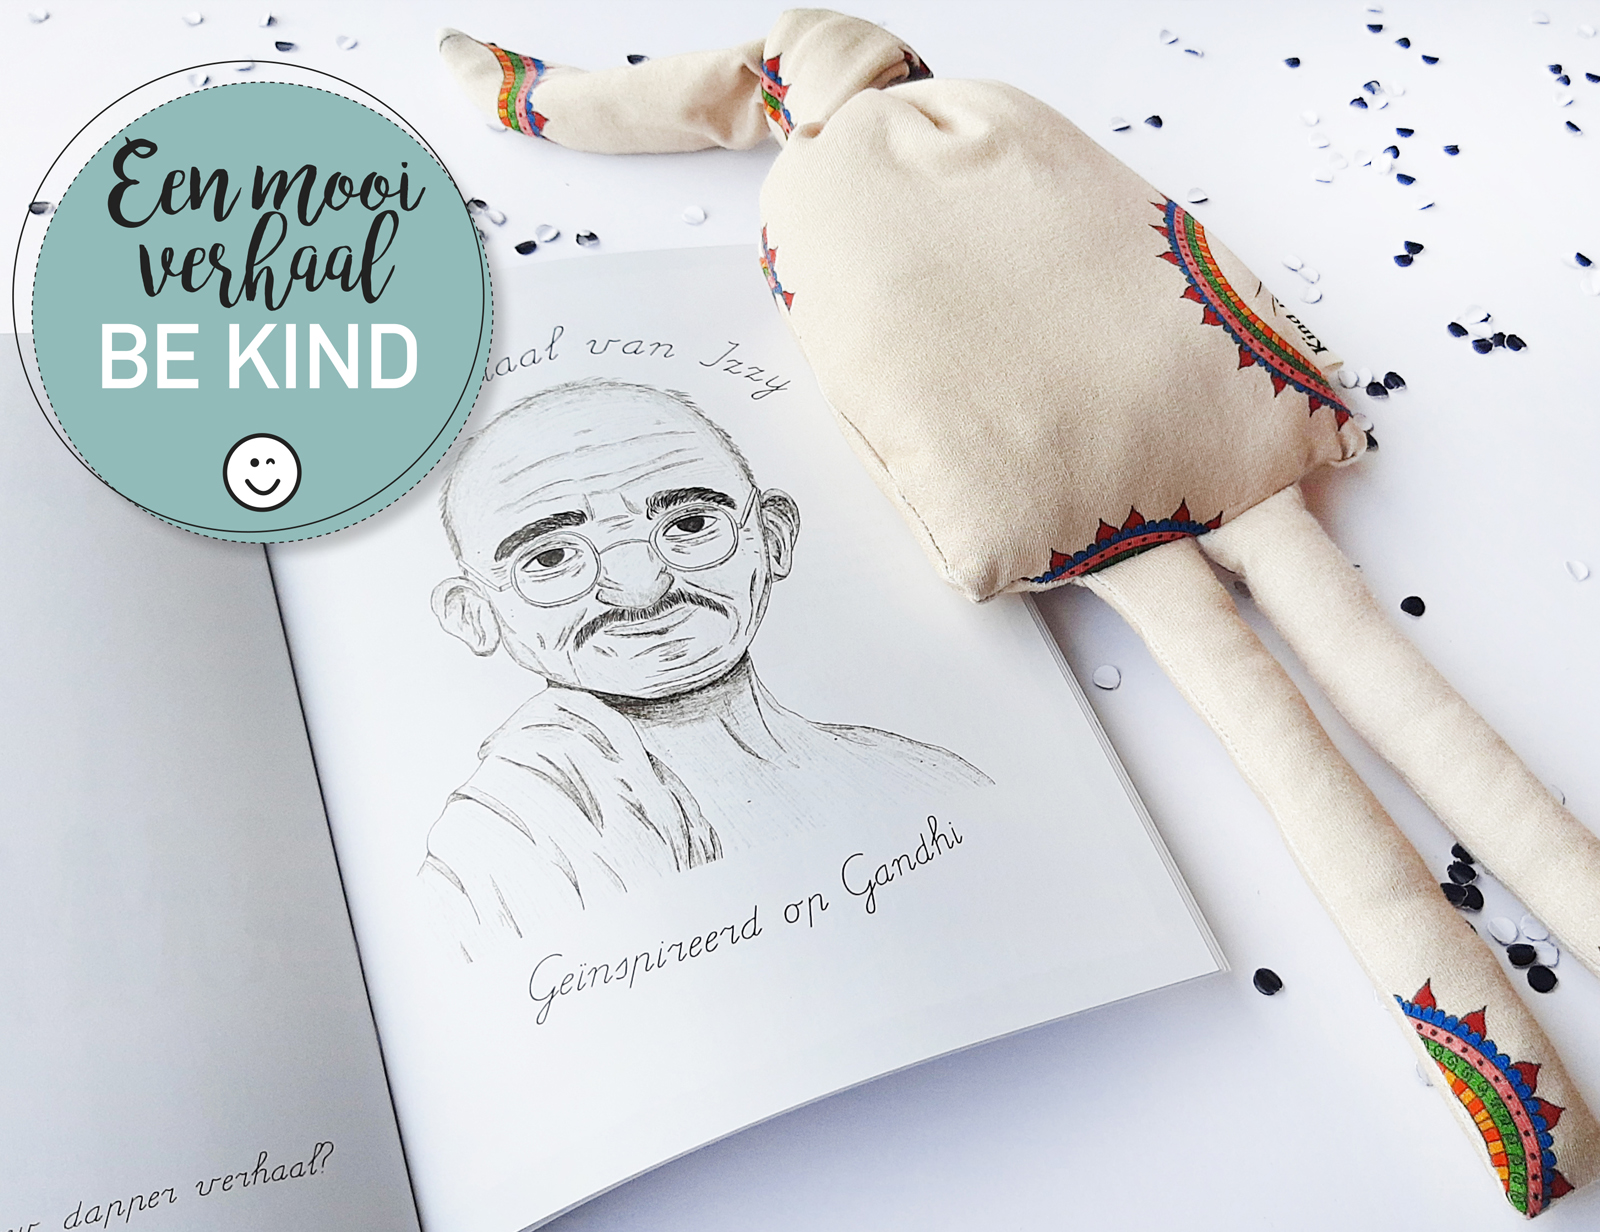 Een mooi
verhaal
BE KIND
van Izzy
Geïnspireerd op Gandhi
dapper verhaal?